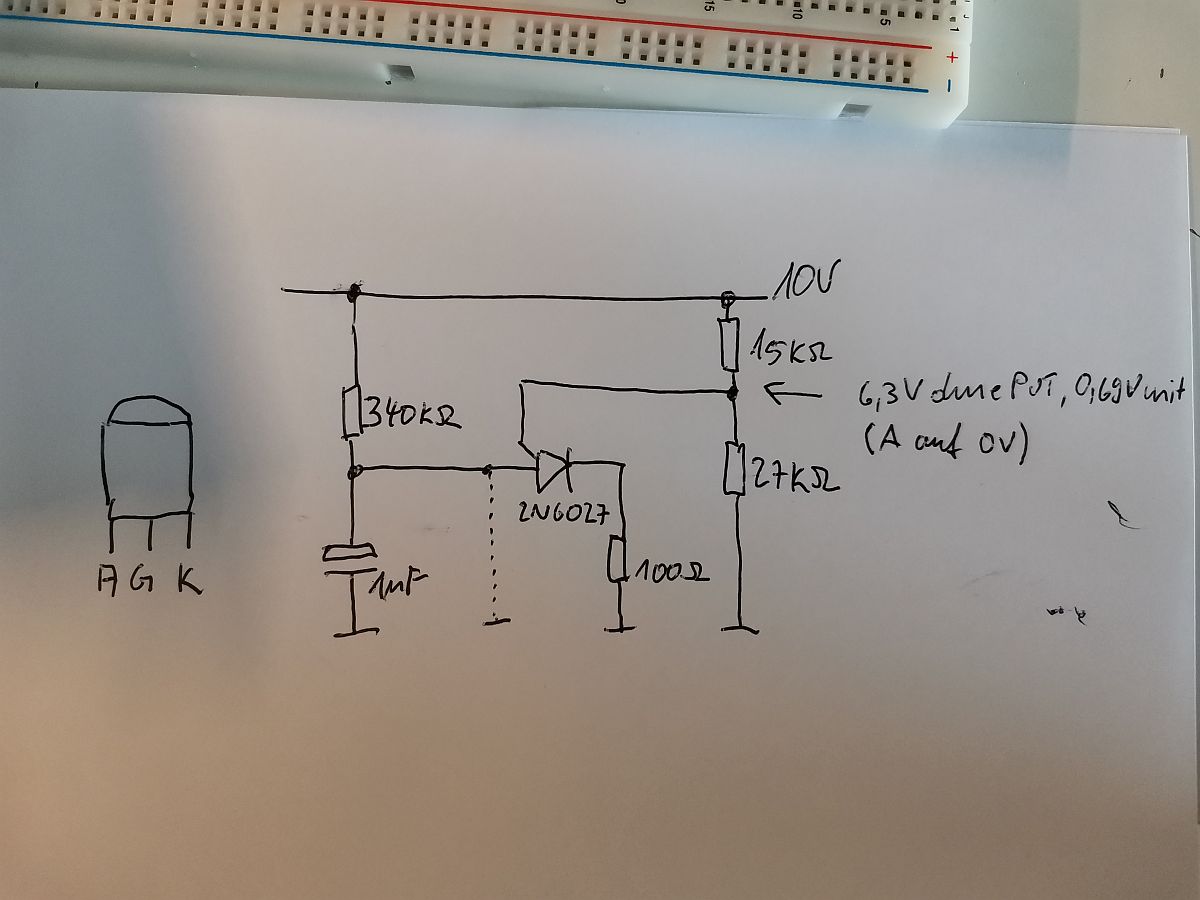 15
10
5
1
+
-
10V
15KΩ
6,3V ohne PUT, 0,69V mit
(A auf 0V)
340KΩ
27KΩ
2N6027
100Ω
1µF
A G K